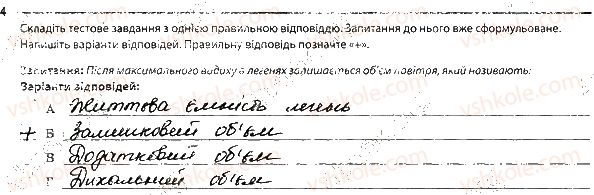 4
Складіть тестове завдання з однією правильною відповіддю. Запитання до нього вже сформульоване.
Напишіть варіанти відповідей. Правильну відповідь позначте «+».
Запитання: Після максимального видиху в легенях залишається об'єм повітря, який називають:
Варіанти відповідей:
А Життєва ємність легень
+ Б Залишковий об'єм
В Додатковий об'єм
Г Дихальний об'єм